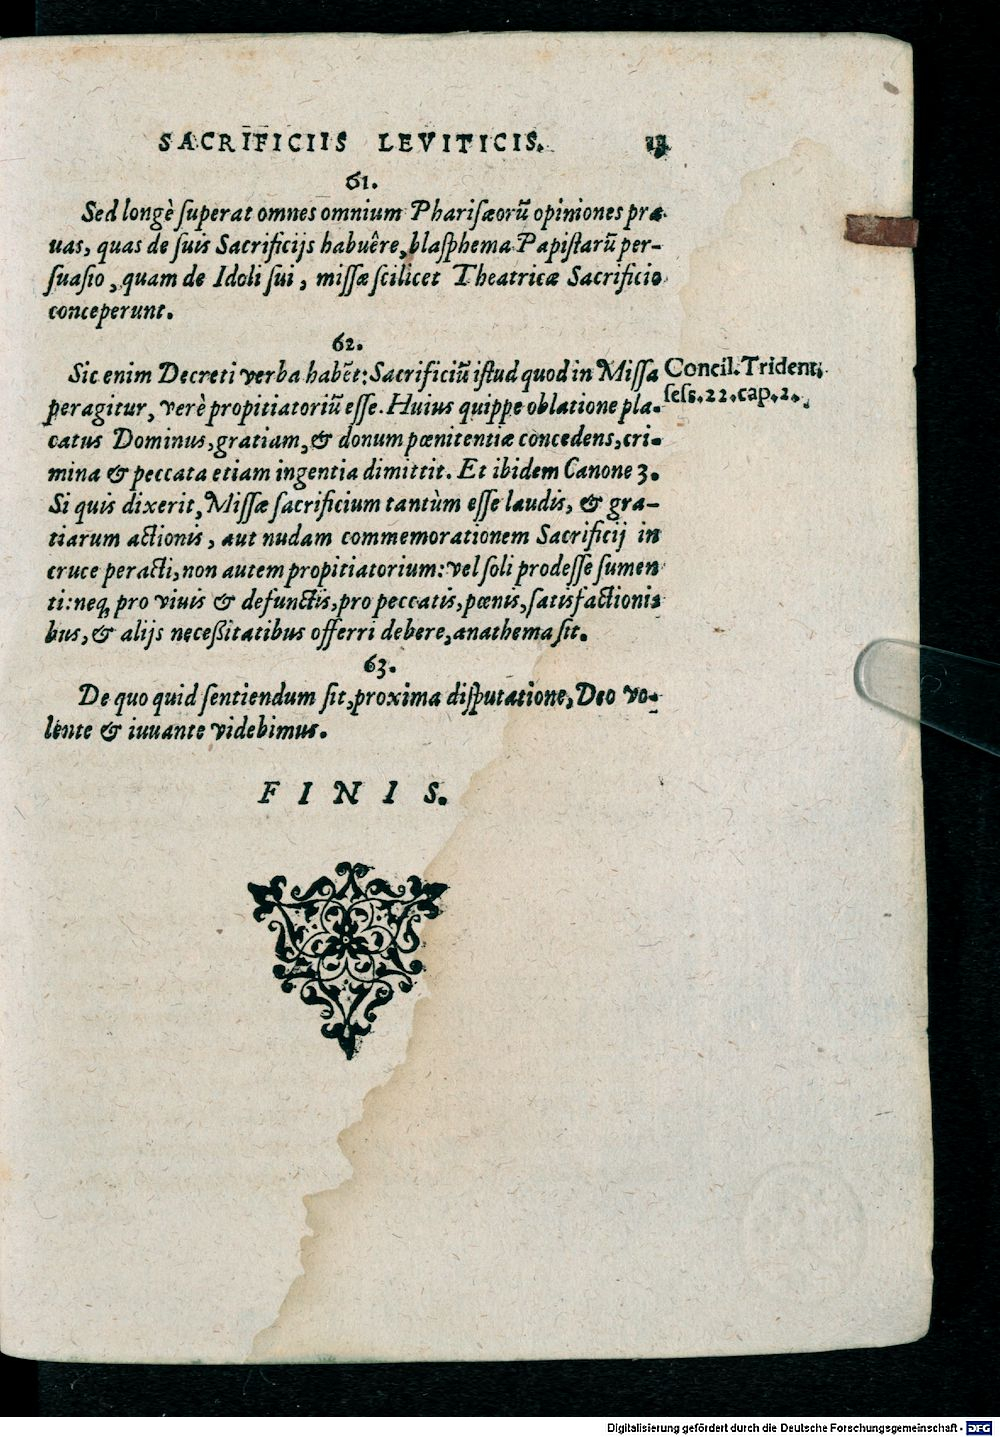 SACRIFICIIS LEVITICIS.
61.
Sed longè ſuperat omnes omnium Phariſæorũ opiniones pra-
uas, quas de ſuis Sacrificijs habuêre, blaſphema Papiſtarũ per-
ſuaſio, quam de Idoli ſui, miſſæ ſcilicet Theatricæ Sacrificio
conceperunt.
62.
Sic enim Decreti verba habẽt: Sacrificiũ iſtud quod in Miſſa
peragitur, verè propitiatoriũ eſſe. Huius quippe oblatione pla-
catus Dominus, gratiam, & donum pœnitentiæ concedens, cri-
mina & peccata etiam ingentia dimittit. Et ibidem Canone 3.
Si quis dixerit, Miſſæ ſacrificium tantùm eſſe laudis, & gra-
tiarum actionis, aut nudam commemorationem Sacrificij in
cruce peracti, non autem propitiatorium: vel ſoli prodeſſe ſumen
ti: neq; pro viuis & defunctis, pro peccatis, pœnis, ſatisfactioni-
bus, & alijs neceßitatibus offerri debere, anathema ſit.
Concil. Trident.
ſeſs. 22. cap. 2.
63.
De quo quid ſentiendum ſit, proxima diſputatione, Deo vo-
lente & iuuante videbimus.
FINIS.
Digitalisierung gefördert durch die Deutsche Forschungsgemeinschaft - DFG